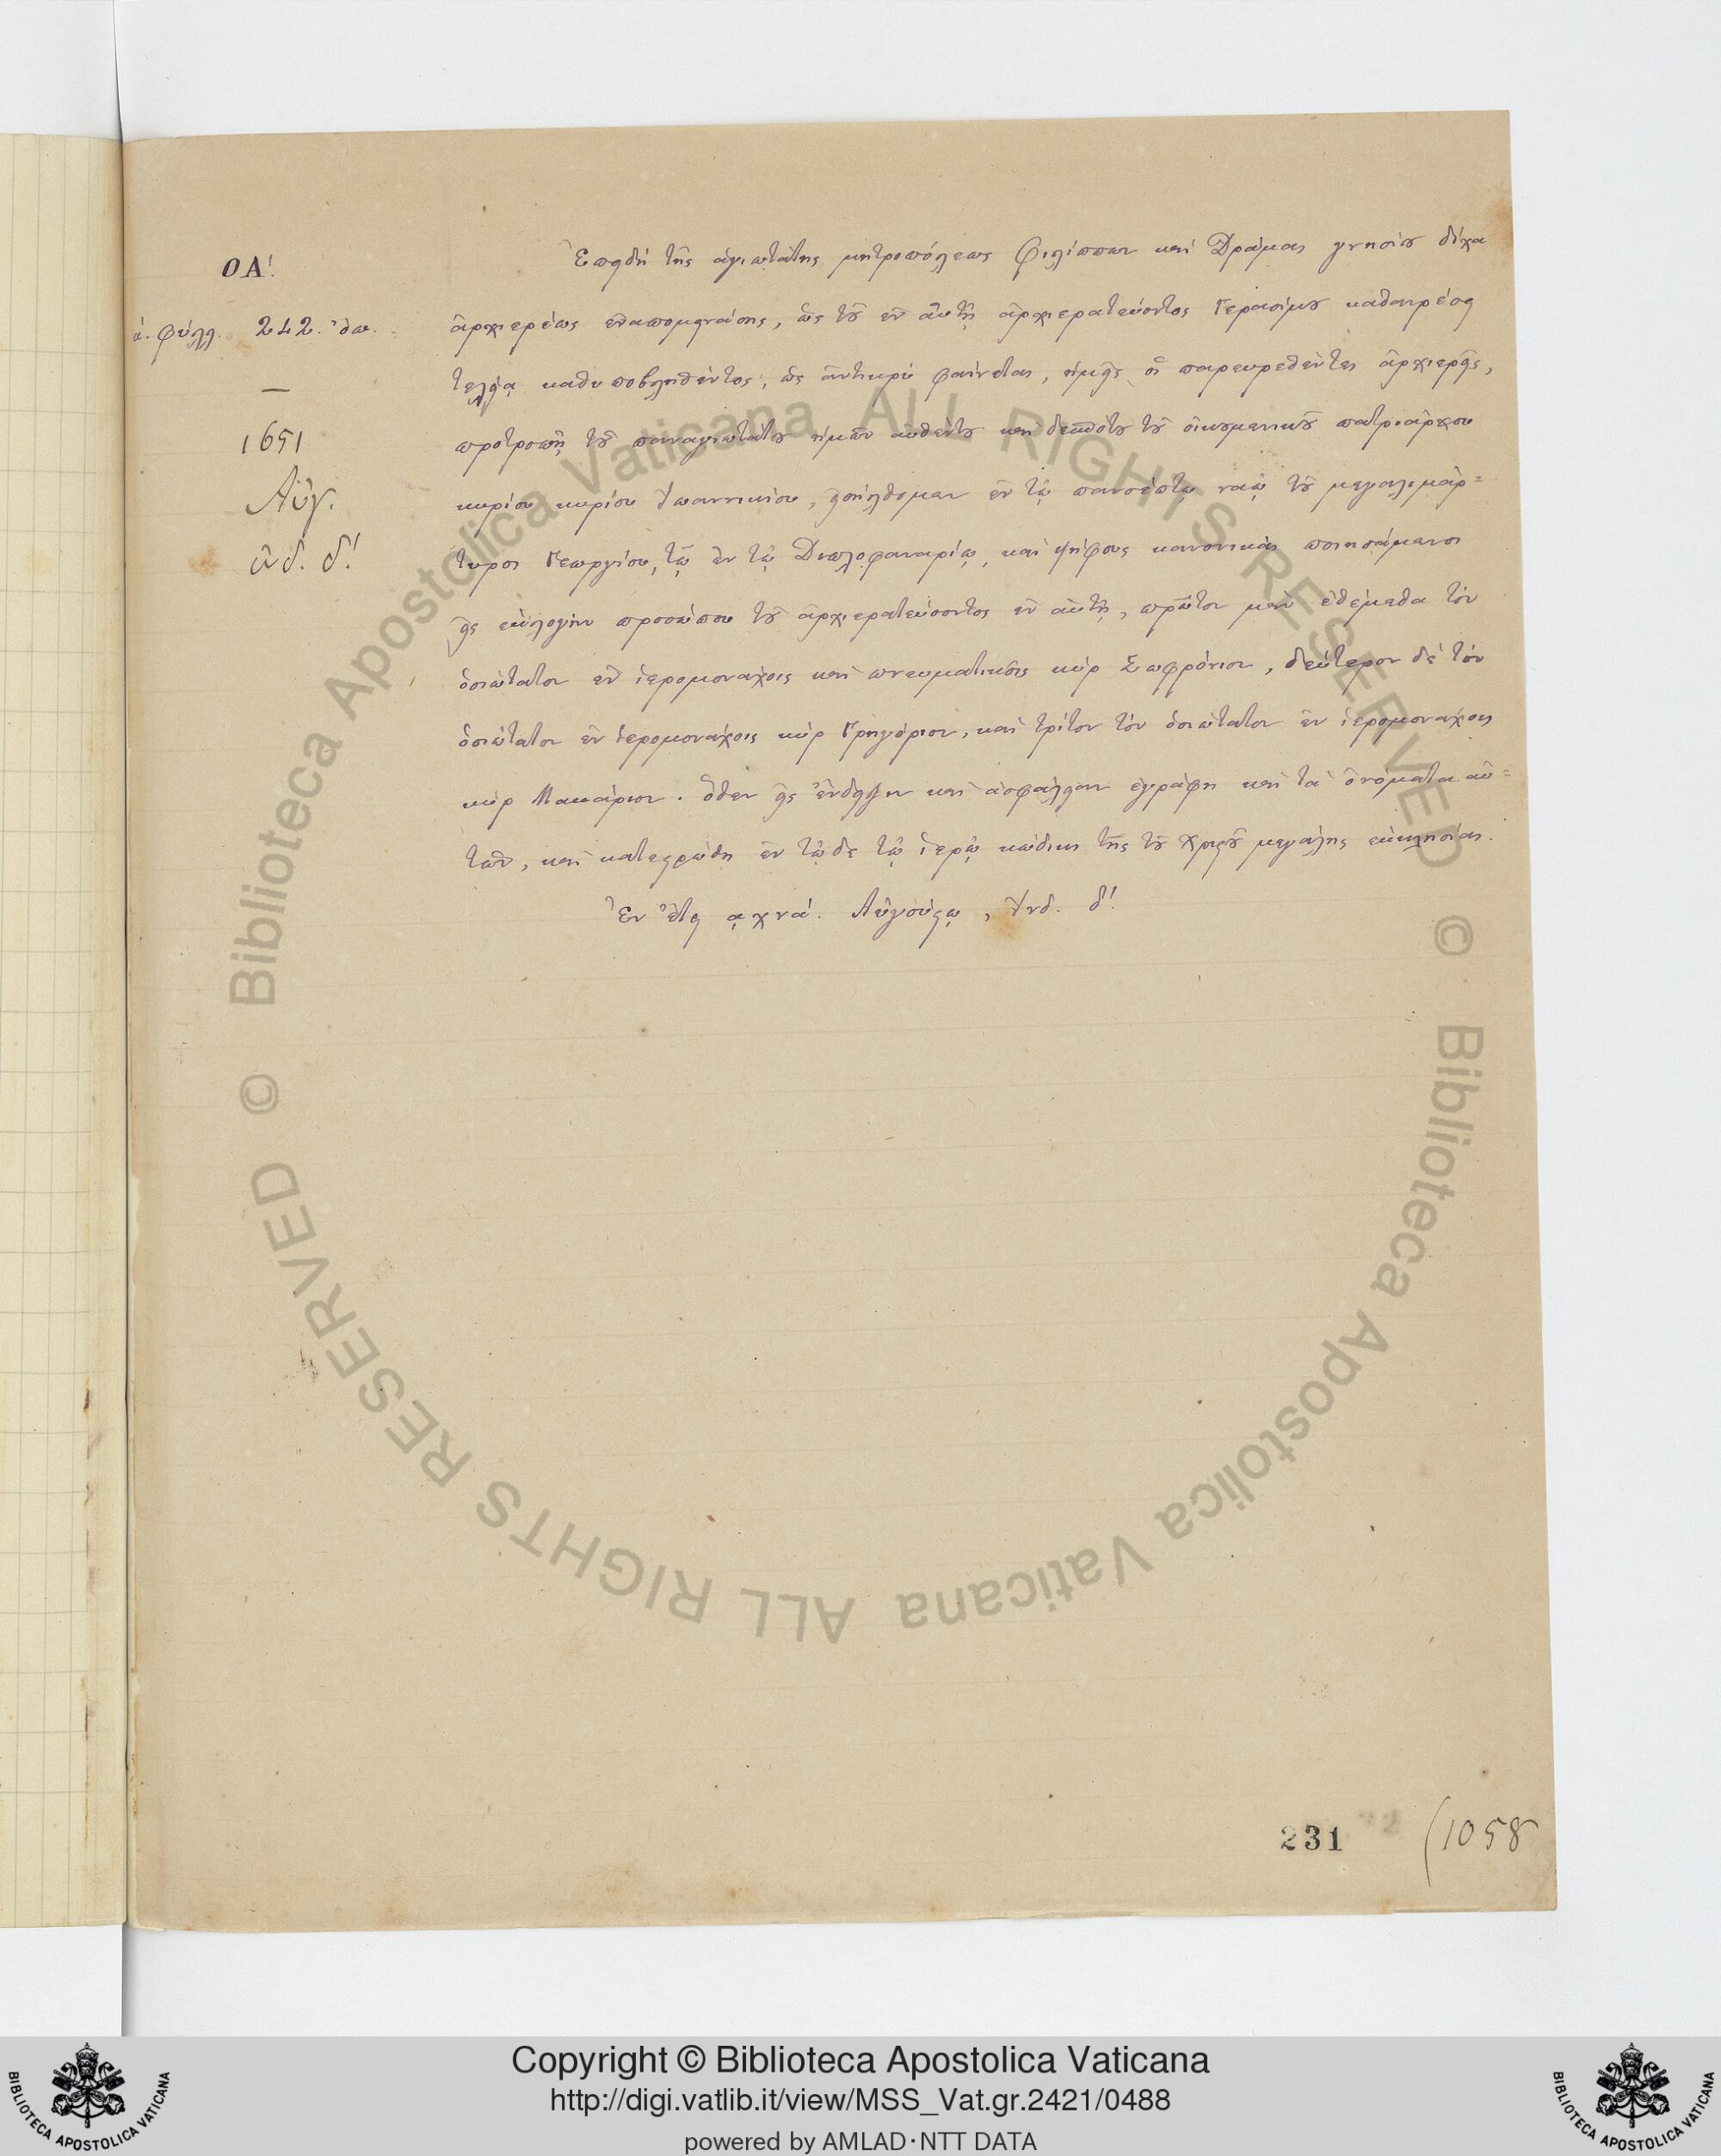 ΟΑ΄.
ά. φύλλ. 242. όω.
1651
Αὔγ.
ἰνδ. δ΄.
Ἐπειδὴ τῆς ἁγιωτάτης μητροπόλεως Φιλίππων καὶ Δράμας γνησίου δίχα
ἀρχιερέως ἐναπομεινάσης, ὡς τοῦ ἐν αὐτῇ ἀρχιερατεύοντος Γερασίμου καθαιρέσει
τελείᾳ καθυποβληθέντος, ὡς ἀντικρύ φαίνεται, ἡμεῖς οἱ παρευρεθέντες ἀρχιερεῖς,
προτροπῇ τοῦ παναγιωτάτου ἡμῶν αὐθέντου καὶ δεσπότου τοῦ οἰκουμενικοῦ πατριάρχου
κυρίου κυρίου Ἰωαννικίου, εἰσήλθομεν ἐν τῷ πανσέπτῳ ναῷ τοῦ μεγαλομάρ=
τυρος Γεωργίου, τῷ ἐν τῷ Διπλοφαναρίῳ, καὶ ψήφους κανονικὰς ποιησάμενοι
εἰς ἐκλογὴν προσώπου τοῦ ἀρχιερατεύσοντος ἐν αὐτῇ, πρῶτον μὲν ἐθέμεθα τὸν
ὁσιώτατον ἐν ἱερομονάχοις καὶ πνευματικοῖς κὺρ Σωφρόνιον, δεύτερον δὲ τὸν
ὁσιώτατον ἐν ἱερομονάχοις κὺρ Γρηγόριον, καὶ τρίτον τὸν ὁσιώτατον ἐν ἱερομονάχοις
κὺρ Μακάριον. ὅθεν εἰς ἔνδειξιν καὶ ἀσφάλειαν ἐγράφη καὶ τὰ ὀνόματα αὐ=
τῶν, καὶ κατεστρώθη ἐν τῷδε τῷ ἱερῷ κώδικι τῆς τοῦ Χριστοῦ μεγάλης ἐκκλησίας.
Ἐν ἔτει ͵αχνα΄. Αὐγούστῳ, Ἰνδ. δ΄.
231
(1058
© Biblioteca Apostolica Vaticana ALL RIGHTS RESERVED
© Biblioteca Apostolica Vaticana ALL RIGHTS RESERVED
Copyright © Biblioteca Apostolica Vaticana
http://digi.vatlib.it/view/MSS_Vat.gr.2421/0488
powered by AMLAD·NTT DATA
BIBLIOTECA APOSTOLICA VATICANA
BIBLIOTECA APOSTOLICA VATICANA